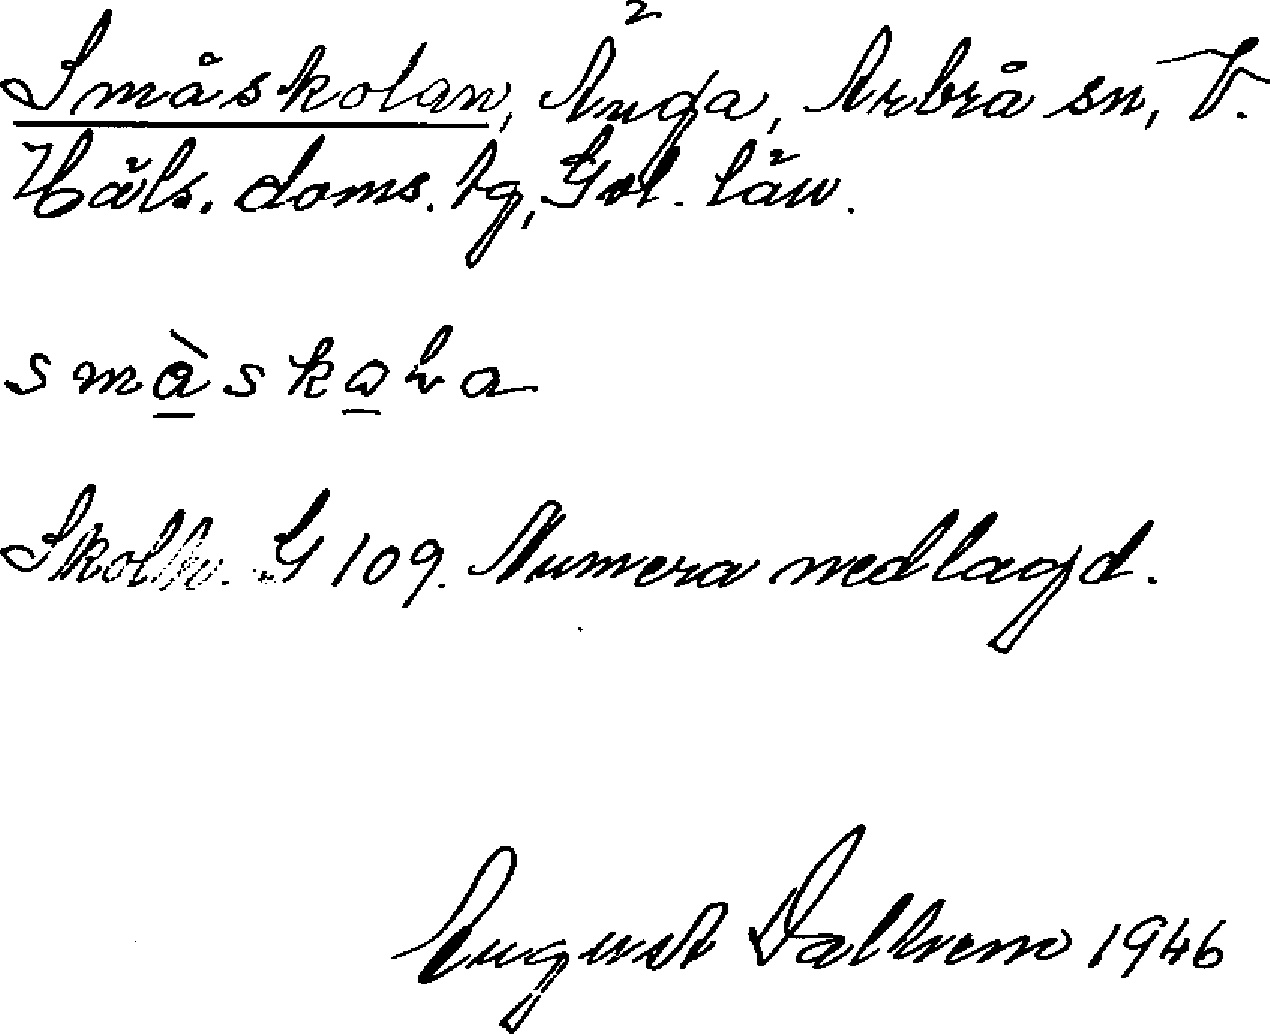 Småskolan, Änga, Arbrå sn, V.
Häls. doms. tg, Gvl. län.
småskola
G 109. Numera nedlagd.
August Dalhem 1946